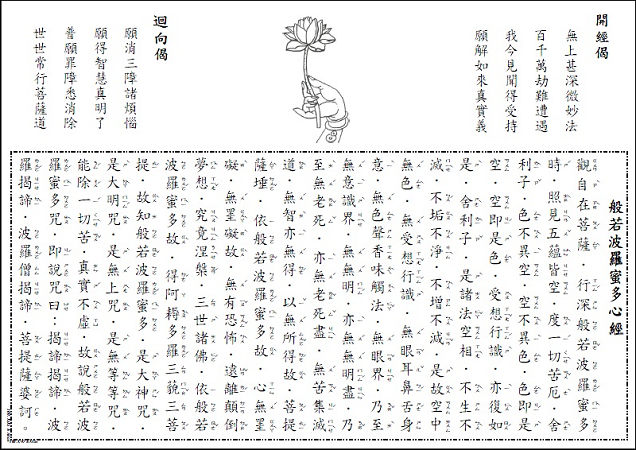 開經偈
無上甚深微妙法
百千萬劫難遭遇
我今見聞得受持
願解如來真實義
迴向偈
願消三障諸煩惱
願得智慧真明了
普願罪障悉消除
世世常行菩薩道
般若波羅蜜多心經
觀自在菩薩　行深般若波羅蜜多
時‧照見五蘊皆空　度一切苦厄‧舍
利子‧色不異空‧空不異色‧色即是
空‧空即是色　受想行識‧亦復如
是‧舍利子‧是諸法空相‧不生不
滅‧不垢不淨‧不增不減‧是故空中
無色‧無受想行識‧無眼耳鼻舌身
意‧無色聲香味觸法‧無眼界‧乃至
無意識界‧無無明‧亦無無明盡‧乃
至無老死‧亦無老死盡‧無苦集滅
道‧無智亦無得‧以無所得故‧菩提
薩埵‧依般若波羅蜜多故‧心無罣
礙‧無罣礙故‧無有恐怖‧遠離顛倒
夢想‧究竟涅槃‧三世諸佛‧依般若
波羅蜜多故‧得阿耨多羅三藐三菩
提‧故知般若波羅蜜多‧是大神咒‧
是大明咒‧是無上咒‧是無等等咒‧
能除一切苦‧真實不虛‧故說般若波
羅蜜多咒‧即說咒曰：揭諦揭諦　波
羅揭諦‧波羅僧揭諦‧菩提薩婆訶。